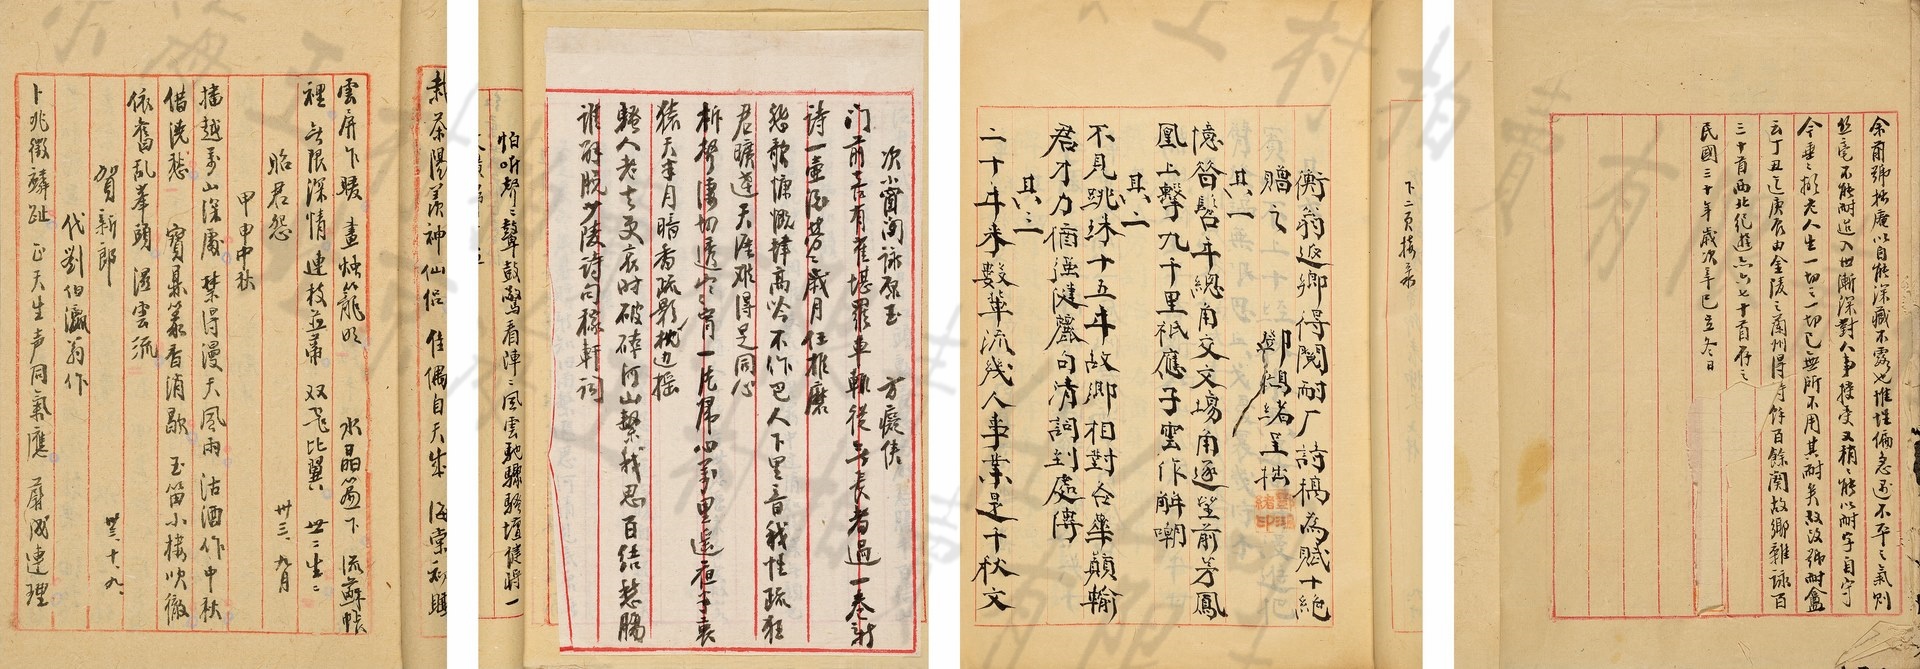 栽茶陽羨神仙侶 佳偶自天成 海棠初睡
雲屏乍暖 畫燭籠明 水晶簾下 流蘇帳
裡 無限深情 連枝並蒂 双飞比翼 世二生二
卅三、九月
昭君怨
甲申中秋
擋越萬山深處 禁得漫天風雨 沽酒作中秋
借澆愁 寶鼎篆香消歇 玉笛小樓吹徹
依舊亂峯頭 濕雲流
賀新郎 卅三、十、九、
代劉伯瀛翁作
卜兆徵麟趾 正天生声同氣應 蔚成連理
怕听聲二鼙鼓驚看陣二風雲馳驟騷壇健將一
次小窗閒詠原玉 方癡僕
门前吾有雀堪羅車轍從無長者過一卷新
詩一壺酒歲月任推磨
悲歌慷慨肆高吟不作巴人下里音我性疏狂
君曠達天涯难得是同心
柝聲淒切透寒宵一片歸心萬里遙夜半哀
猿天半月暗香疏影枕边摇
騷人老去更哀时破碎河山繫我思百結愁腸
誰解脱少陵詩句稼軒詞
下二頁接
衡翁返鄉得閱耐厂詩稿為賦十絕
贈之 鄧鶴緒呈拙
其一
憶昔髫年總角交文場角逐望前芳鳳
凰上擊九千里祇應子雲作解嘲
其二
不見跳珠十五年故鄉相對各華顛輸
君才力猶强健麗句清詞到處傳
其三
二十年來數輩流幾人事業是千秋文
余前號拙庵以自能深藏不露也惟性偏急遇不平之氣則
丝毫不能耐近入世漸深對人事接受又稍之能以耐字自守
今垂之将老人生一切之一切已無所不用其耐矣故改號耐盦
云丁丑迄庚辰由金陵之蘭州得詩餘百餘闋故鄉雜詠百
三十首西北纪遊六六七十首存之
民國三十年歲次辛巳立冬日